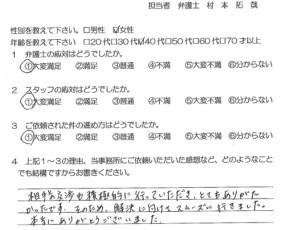 担当者 弁護士 村本拓哉
性別を教えて下さい。□男性 ☑女性
年齢を教えて下さい □20代□30代☑40代□50代□60代□70才以上
1 弁護士の応対はどうでしたか。
①大変満足 ②満足 ③普通 ④不満 ⑤大変不満 ⑥分からない
2 スタッフの応対はどうでしたか。
①大変満足 ②満足 ③普通 ④不満 ⑤大変不満 ⑥分からない
3 ご依頼された件の進め方はどうでしたか。
①大変満足 ②満足 ③普通 ④不満 ⑤大変不満 ⑥分からない
4 上記1～3の理由、当事務所にご依頼いただいた感想など、どのようなこと
でも結構ですからお書きください。
相手方交渉も積極的に行っていただき、とてもありがた
かったです。そのため、解決に向けてスムーズに行きました。
本当にありがとうございました。